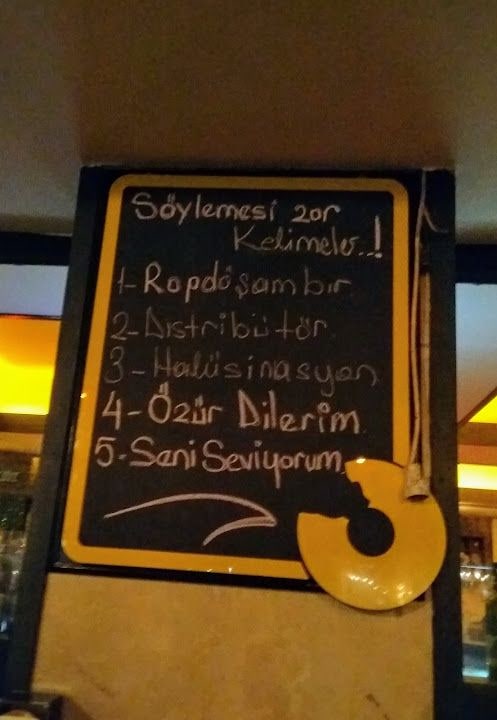 Söylemesi zor
Kelimeler..!
1-Ropdöşambır
2-Distribütör.
3-Halüsinasyon
4-Özür Dilerim.
5-Seni Seviyorum.